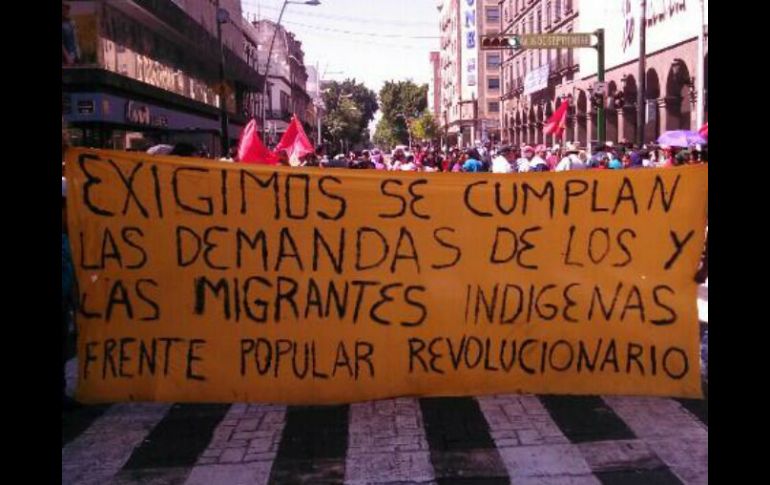 EXIGIMOS SE CUMPLAN
LAS DEMANDAS DE LOS Y
LAS MIGRANTES INDIGENAS
FRENTE POPULAR REVOLUCIONARIO